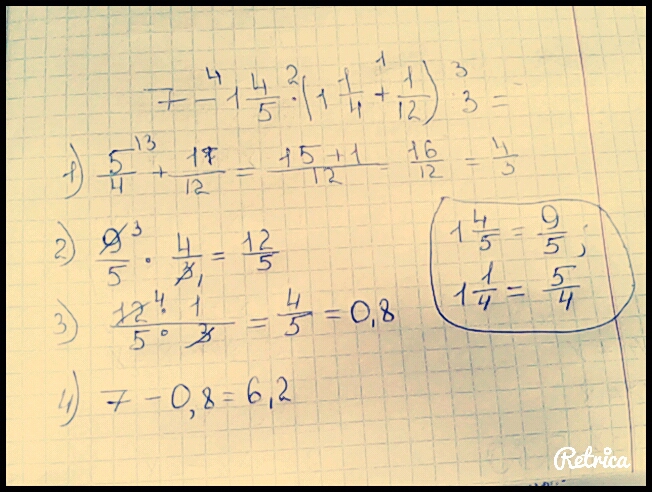 7 - ⁴ 1 4/5 · ² (1 1/4 + ¹ 1/12) : ³ 3 =
1) 5/4 ¹³ + 1/12 = 15+1/12 = 16/12 = 4/3
2) 9³/5 · 4/3₁ = 12/5
3) 12⁴ · 1/5 · 3 = 4/5 = 0,8
4) 7 - 0,8 = 6,2
1 4/5 = 9/5;
1 1/4 = 5/4
Retrica